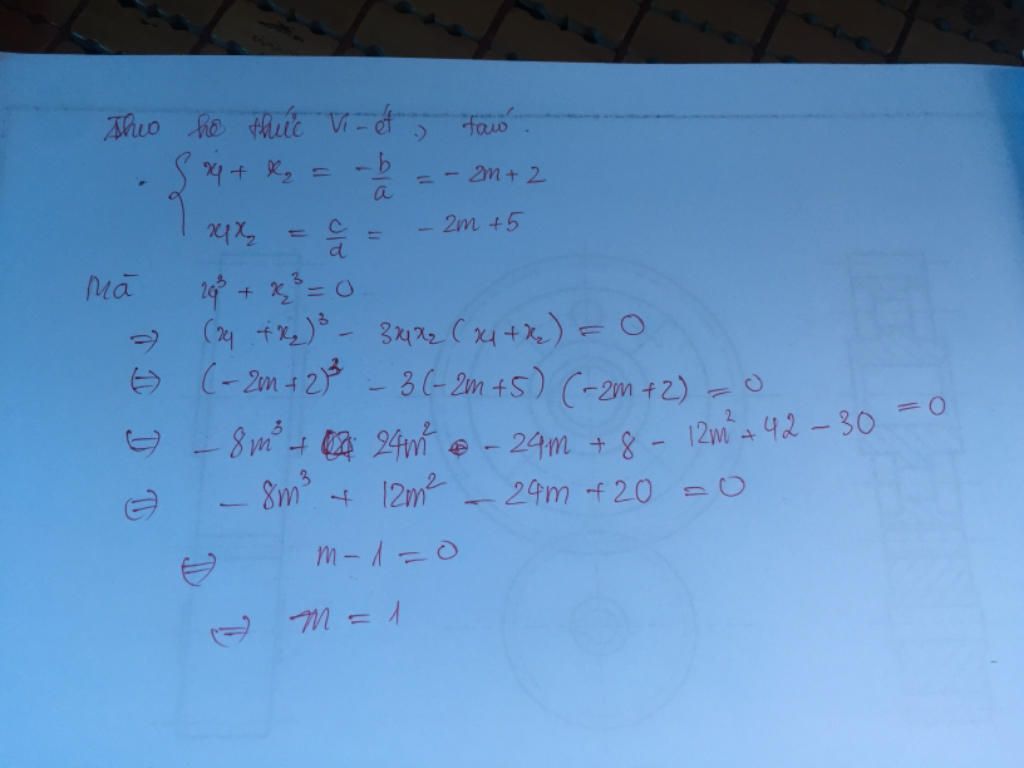 Theo hệ thức Vi-ét, ta có.
{ x₁ + x₂ = -b/a = -2m + 2
x₁x₂ = c/a = -2m + 5
Mà x₁³ + x₂³ = 0
⇒ (x₁ + x₂)³ - 3x₁x₂(x₁ + x₂) = 0
⇔ (-2m + 2)³ - 3(-2m + 5)(-2m + 2) = 0
⇔ -8m³ + 24m² - 24m + 8 - 12m² + 42 - 30 = 0
⇔ -8m³ + 12m² - 24m + 20 = 0
⇔ m - 1 = 0
⇔ m = 1